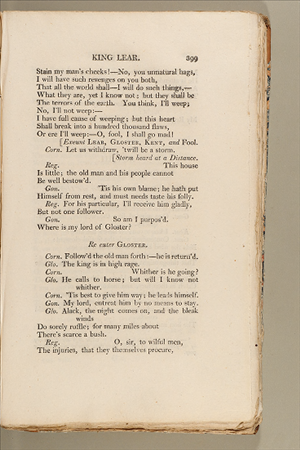 KING LEAR. 399
Stain my man's cheeks!—No, you unnatural hags,
I will have such revenges on you both,
That all the world shall—I will do such things,—
What they are, yet I know not; but they shall be
The terrors of the earth. You think, I'll weep;
No, I'll not weep:—
I have full cause of weeping; but this heart
Shall break into a hundred thousand flaws,
Or ere I'll weep:—O, fool, I shall go mad!
[Exeunt LEAR, GLOSTER, KENT, and Fool.
Corn. Let us withdraw, 'twill be a storm.
[Storm heard at a Distance.
Reg. This house
Is little; the old man and his people cannot
Be well bestow'd.
Gon. 'Tis his own blame; he hath put
Himself from rest, and must needs taste his folly.
Reg. For his particular, I'll receive him gladly,
But not one follower.
Gon. So am I purpos'd.
Where is my lord of Gloster?
Re enter GLOSTER.
Corn. Follow'd the old man forth:—he is return'd.
Glo. The king is in high rage.
Corn. Whither is he going?
Glo. He calls to horse; but will I know not
whither.
Corn. 'Tis best to give him way; he leads himself.
Gon. My lord, entreat him by no means to stay.
Glo. Alack, the night comes on, and the bleak
winds
Do sorely ruffle; for many miles about
There's scarce a bush.
Reg. O, sir, to wilful men,
The injuries, that they themselves procure,